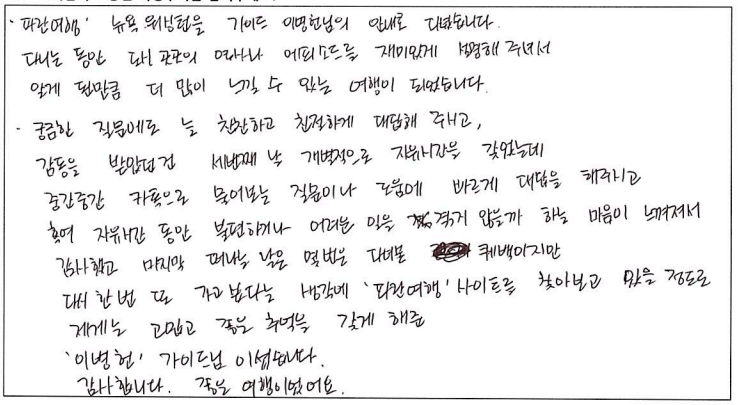 · '파란여행' 뉴욕 워싱턴을 가이드 이병헌님의 안내로 다녔습니다.
다니는 동안 다시 관관의 역사나 에피소드를 재미있게 설명해 주셔서
알게 된만큼 더 많이 느낄 수 있는 여행이 되었습니다.
· 궁금한 질문에도 늘 찬찬하고 친절하게 대답해 주시고,
감동을 받았던건 세번째 날 개별적으로 자유시간을 갖었는데
중간중간 카톡으로 물어보는 질문이나 도움에 바르게 대답을 해주시고
혹여 자유시간 동안 불편하거나 어려운 일을 겪거 않을까 하는 마음이 느껴져서
감사했고 마지막 떠나는 날은 몇번은 다녀본 퀘백이지만
다시 한번 또 가고 싶다는 생각에 '파란여행' 사이트를 찾아보고 있을 정도로
제게는 고맙고 좋은 추억을 갖게 해준
'이병헌' 가이드님 이셨습니다.
감사합니다. 좋은 여행이었어요.